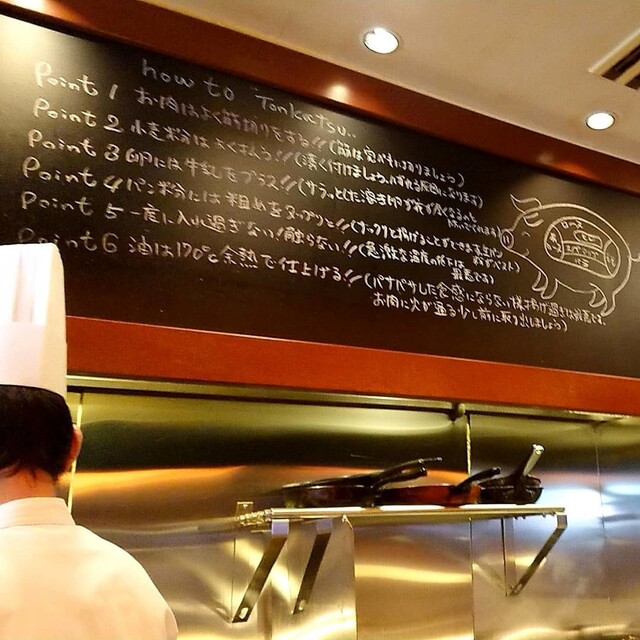 how to Tonkatsu..
Point 1 お肉はよく筋切りをする!! (筋は完ぺきに切りましょう)
Point 2 小麦粉はよくはらう!! (薄く付けましょう、ハずれる原因になります)
Point 3 卵には牛乳をプラス!! (サラッとした溶き卵
Point 4 パン粉には粗めをタップリと!! (サックリと揚げることができる生パン
Point 5 一度に入れ過ぎない!触らない!! (急激な温度の低下は
厳禁です)
Point 6 油は170℃余熱で仕上げる!! (パサパサした食感にならない様揚げ過ぎは厳禁です。
お肉に火が通る少し前に取り出しましょう)
ロース